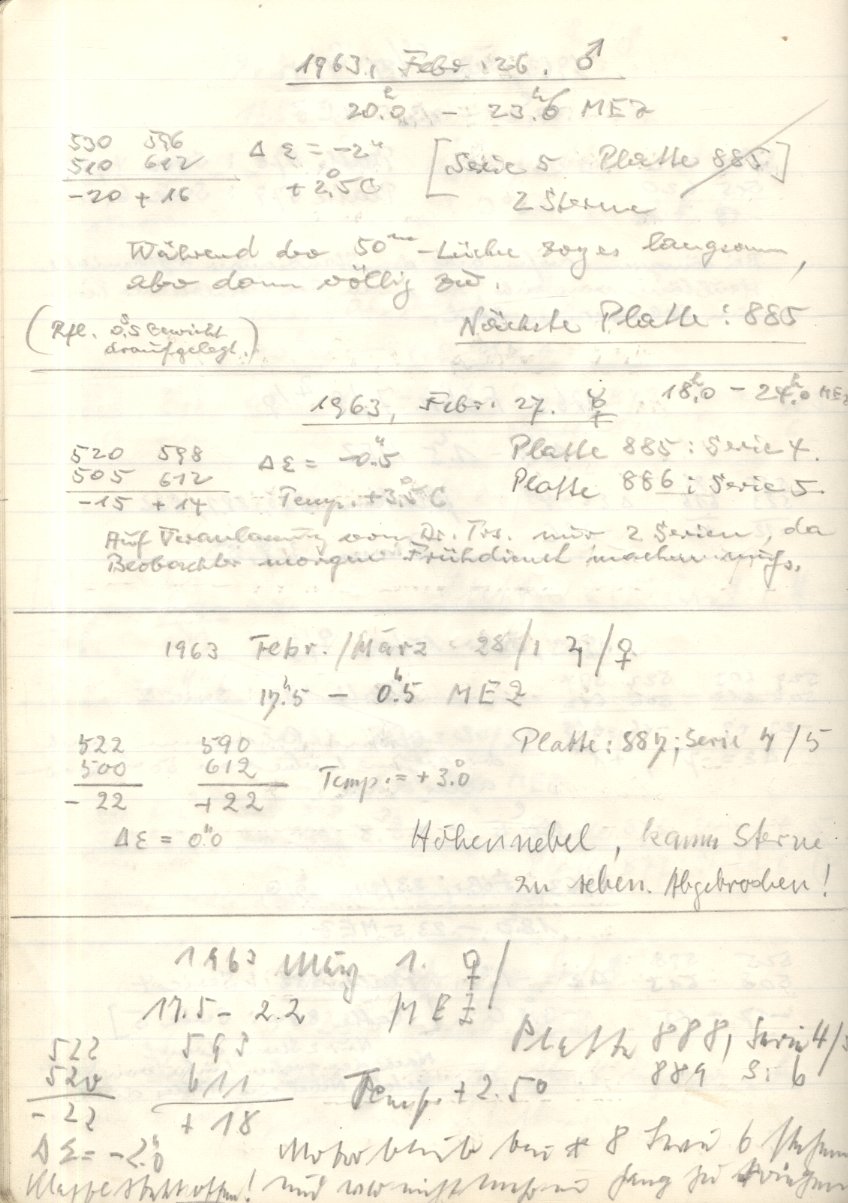 1963, Febr. 26. ♂
20.ʰ0 – 23.ʰ6 MEZ
530 596 Δ ε = -2" [Serie 5 Platte 885]
510 612 + 2.°5 C 2 Sterne
-20 + 16
Während der 50ᵐⁱⁿ-Lücke zog es langsam,
aber dann völlig zu.
(Rfl. 0.5 Gewicht
draufgelegt.)
Nächste Platte: 885
1963, Febr. 27. ☿ 18.ʰ0 – 24.ʰ0 MEZ
520 598 Δ ε = -0."5 Platte 885: Serie 4.
505 612 Platte 886: Serie 5.
-15 + 14 Temp. +3.°5 C
Auf Veranlassung von Dr. Trs. nur 2 Serien, da
Beobachter morgen Frühdienst machen muß.
1963 Febr./März 28/1 ♃/♀
17.ʰ5 – 0.ʰ5 MEZ
522 590 Platte: 887; Serie 4/5
500 612 Temp. = +3.°0
- 22 +22
Δ ε = 0."0 Höhennebel, kaum Sterne
zu sehen. Abgebrochen!
1963 März 1. ♀/
17.5 – 2.2 MEZ
522 593 Platte 888, Serie 4/5
520 611 Temp. +2.5° 889 S: 6
- 22 + 18
Δ ε = -2."0 Motor blieb bei * 8 Serie 6 stehen
Klappe steht offen! und war nicht mehr in Gang zu bringen